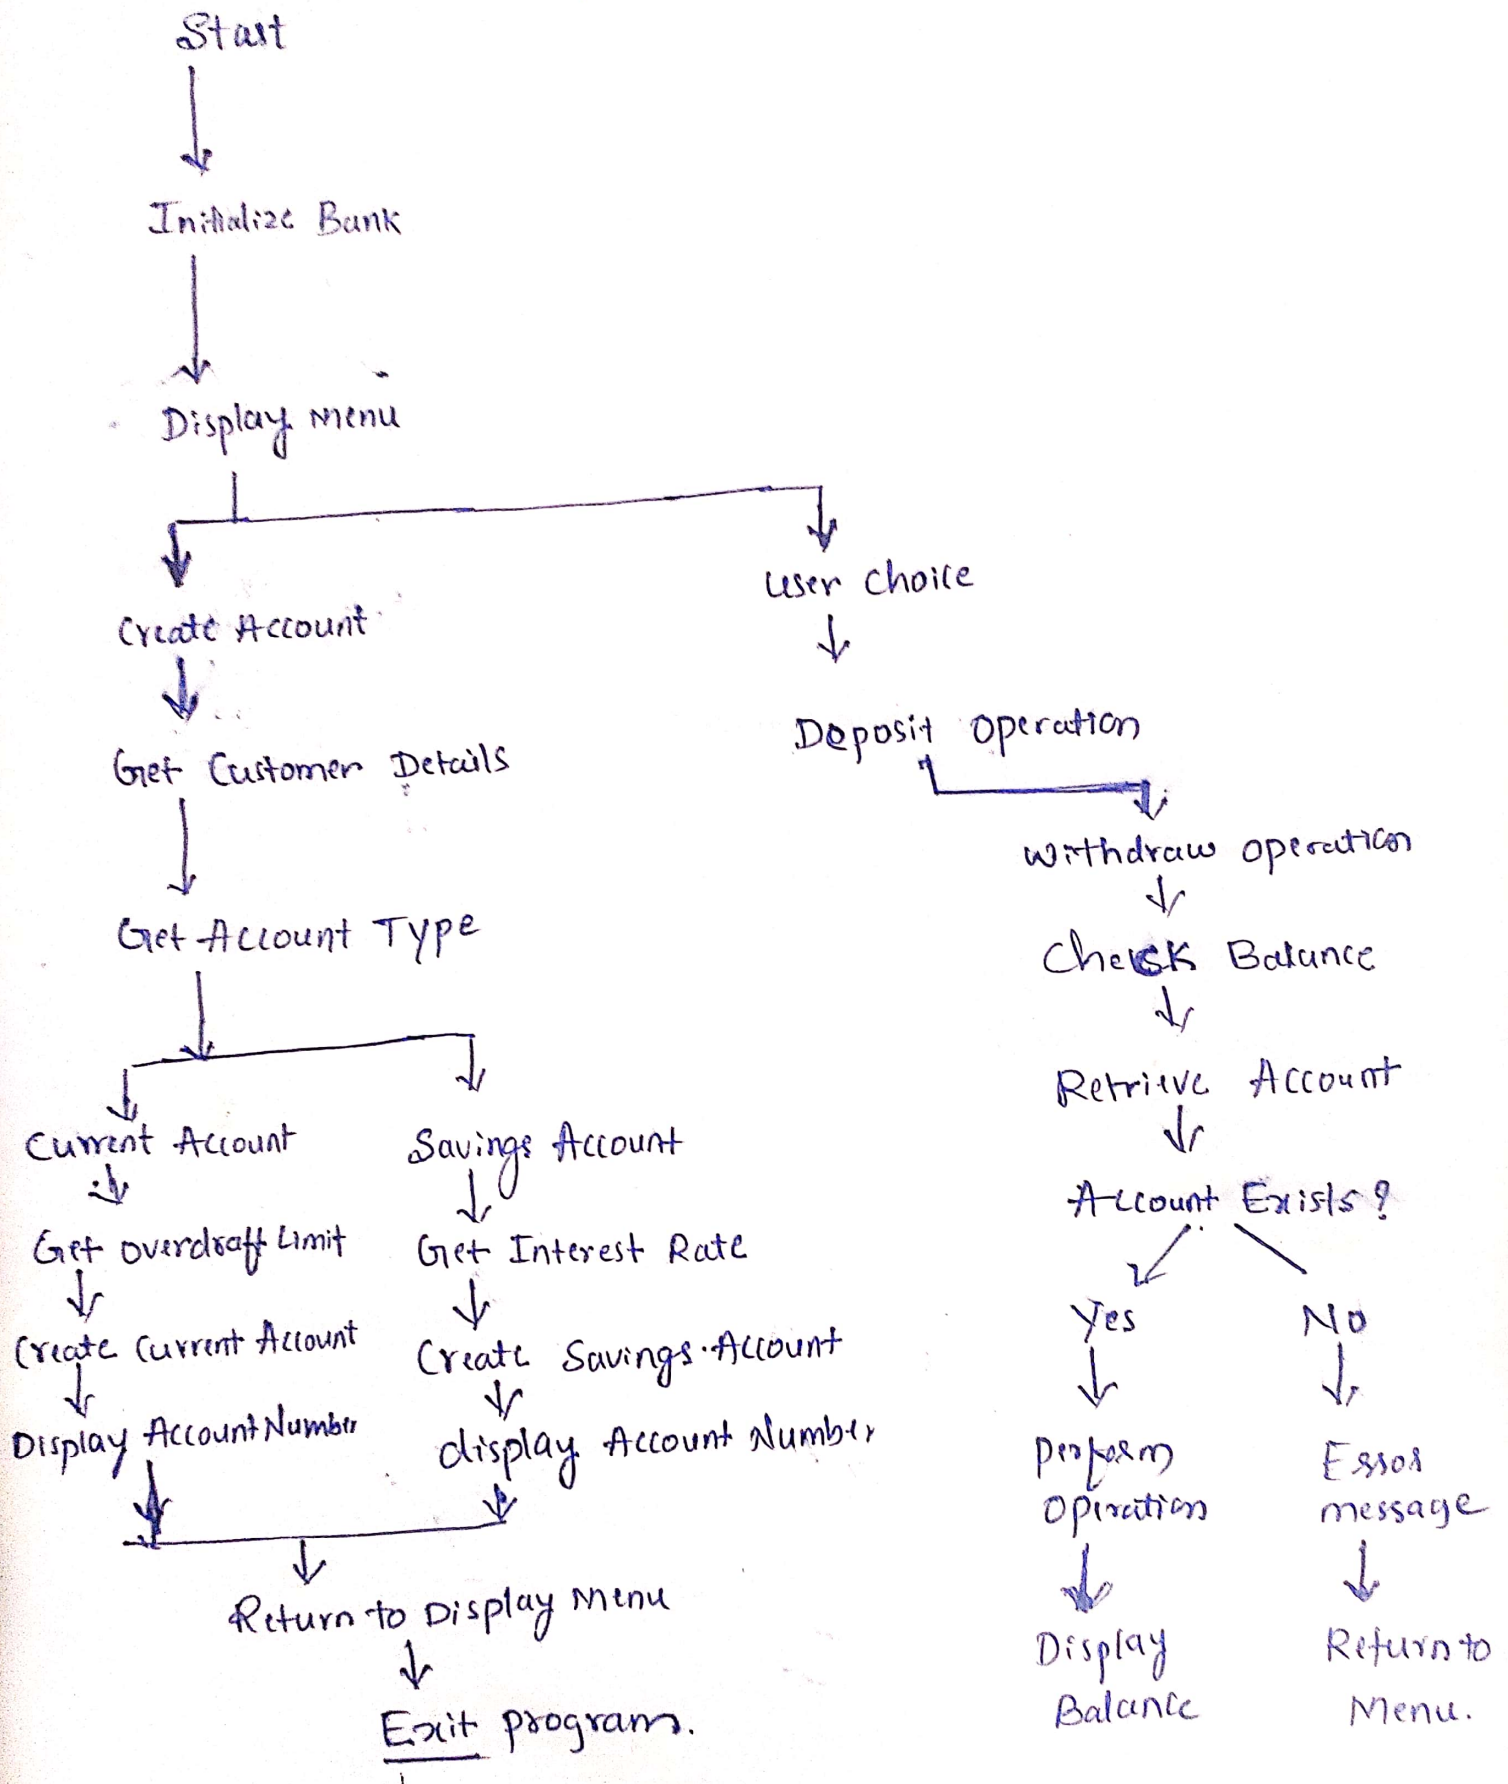 Start
Initialize Bank
Display Menu
Create Account
Get Customer Details
Get Account Type
Current Account
Get overdraft Limit
Create Current Account
Display Account Number
Savings Account
Get Interest Rate
Create Savings Account
display Account Number
Return to Display Menu
Exit program.
User Choice
Deposit Operation
Withdraw operation
Check Balance
Retrieve Account
Account Exists?
Yes
Perform
Operation
Display
Balance
No
Error
message
Return to
Menu.